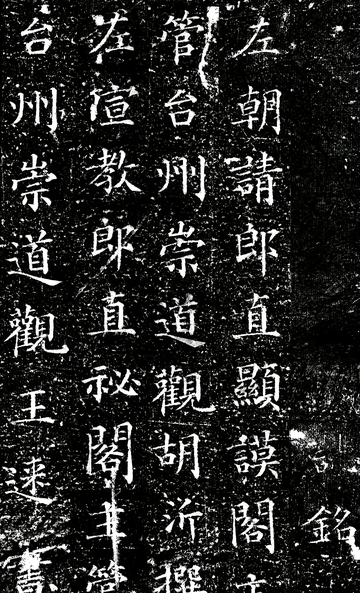 銘
左朝請郎直顯謨閣主
管台州崇道觀胡沂撰
左宣教郎直祕閣主管
台州崇道觀王逨書